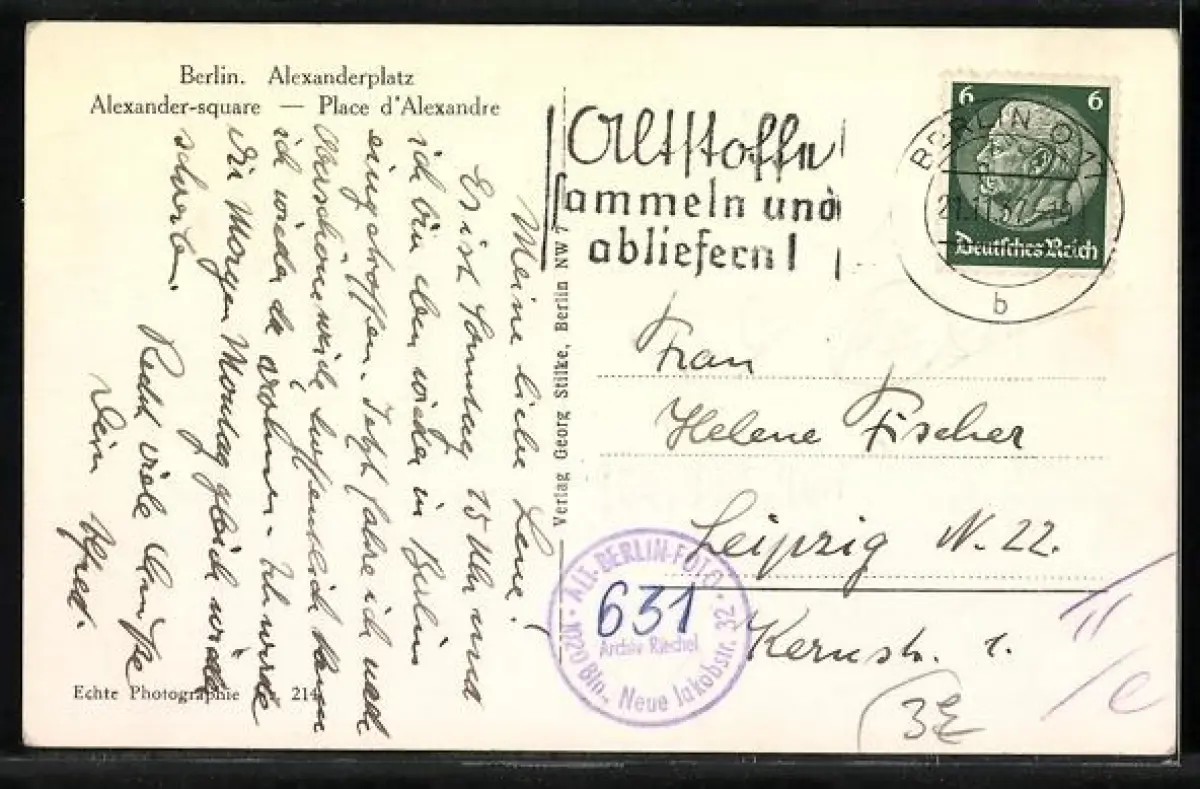 Berlin. Alexanderplatz
Alexander-square — Place d'Alexandre
Meine liebe Lene!
Es ist Sonntag 15 Uhr und
ich bin eben wieder in Berlin
eingetroffen. Jetzt fahre ich nach
Oberschöneweide hoffentlich kann
ich wieder da wohnen. Ich werde
Dir Morgen Montag gleich wieder
schreiben.
Recht viele Grüße
Dein Alfred.
Echte Photographie 214
Verlag Georg Stilke, Berlin NW 7
Altstoffe
sammeln und
abliefern!
6 6
Deutsches Reich
BERLIN O 17
21.11.37.-19
b
Frau
Helene Fischer
Leipzig N. 22.
Kernstr. 1.
ALT-BERLIN-FOTO
631
Archiv Riechel
1020 Bln., Neue Jakobstr. 32